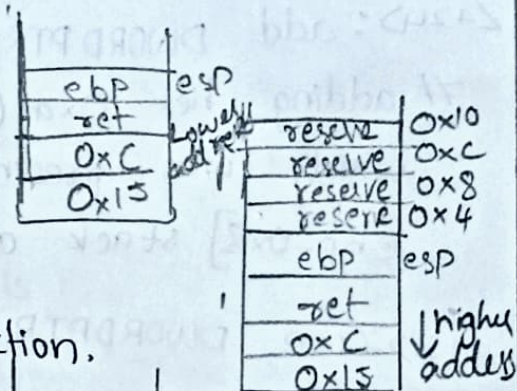 ebp esp
ret
0xC
0x15
lowest address
reserve 0x10
reserve 0xC
reserve 0x8
reserve 0x4
ebp esp
ret
0xC
0x15
↓ higher address
ction.